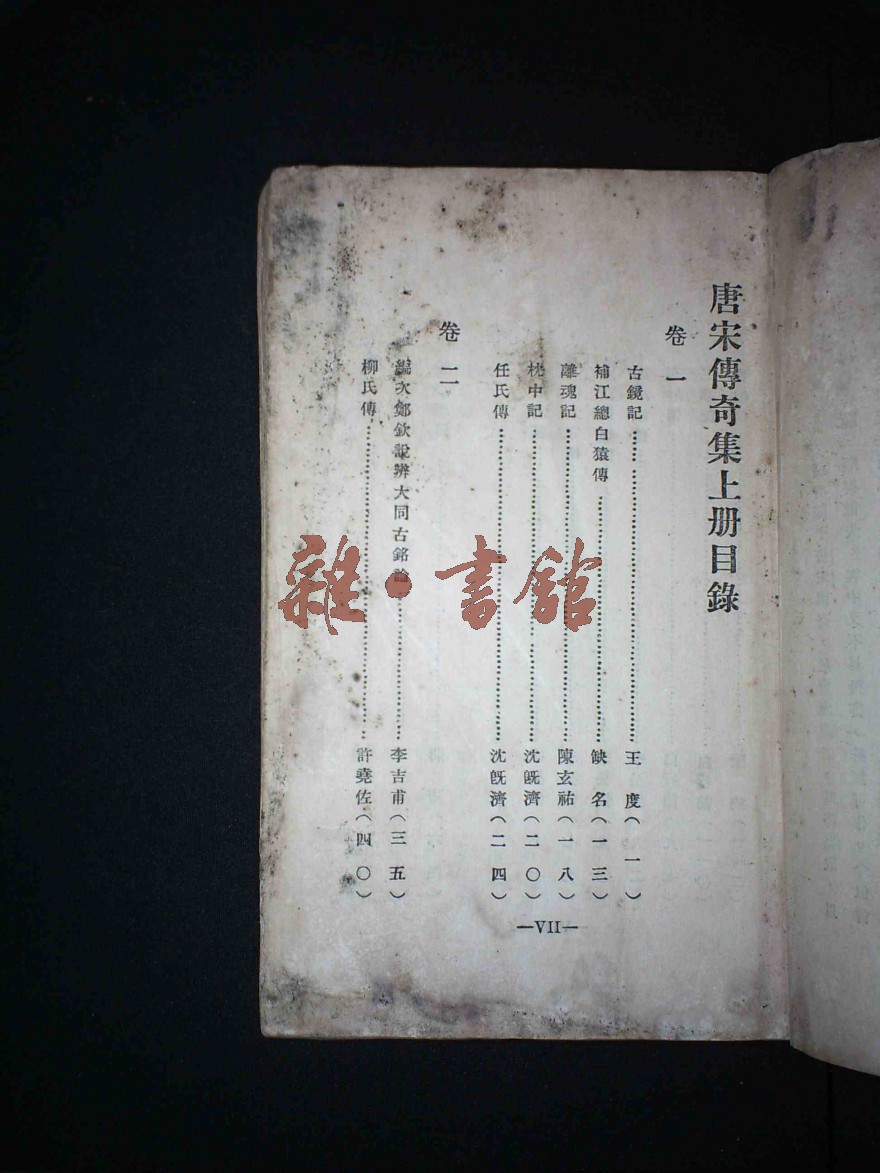 唐宋傳奇集上册目錄
卷一
古鏡記……王度（一）
補江總白猿傳……缺名（一三）
離魂記……陳玄祐（一八）
枕中記……沈旣濟（二〇）
任氏傳……沈旣濟（二四）
卷二
編次鄭欽說辨大同古銘論……李吉甫（三五）
柳氏傳……許堯佐（四〇）
—VII—
雜·書館